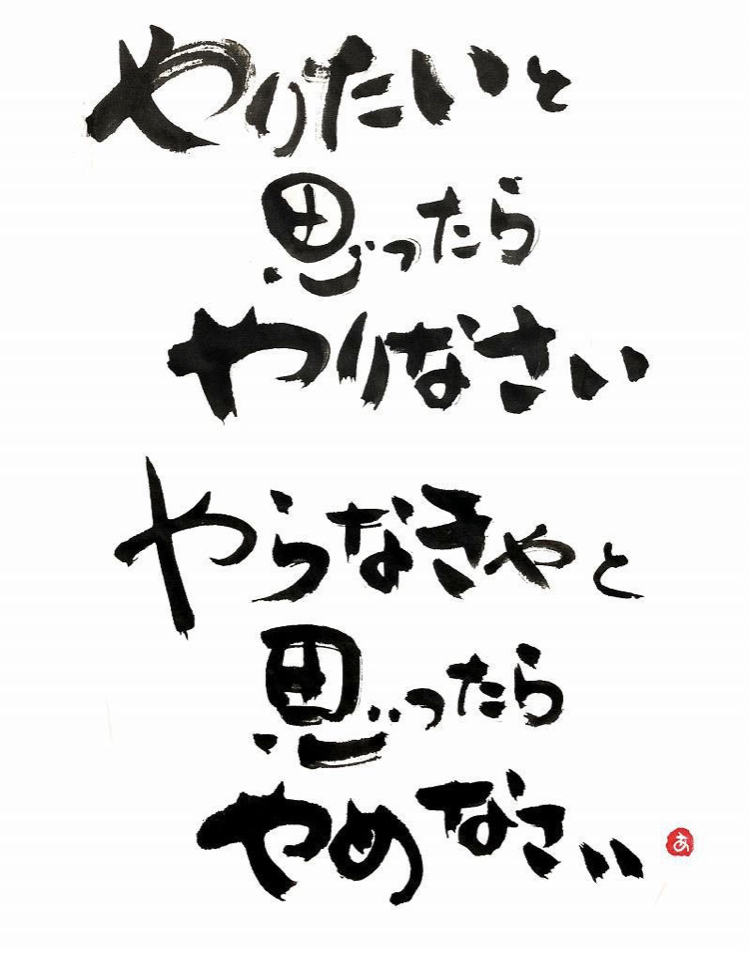 やりたいと
思ったら
やりなさい
やらなきゃと
思ったら
やめなさい
あ